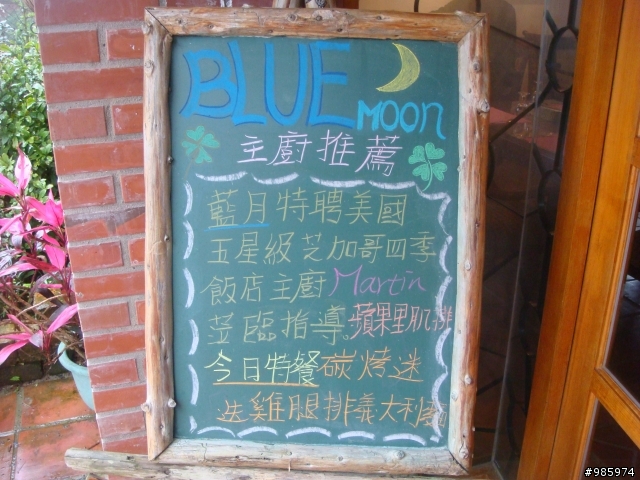 BLUE
MOON
主廚推薦
藍月特聘美國
五星級芝加哥四季
飯店主廚Martin
蒞臨指導。蘋果里肌排
今日特餐碳烤迷
迭雞腿排義大利麵
#985974